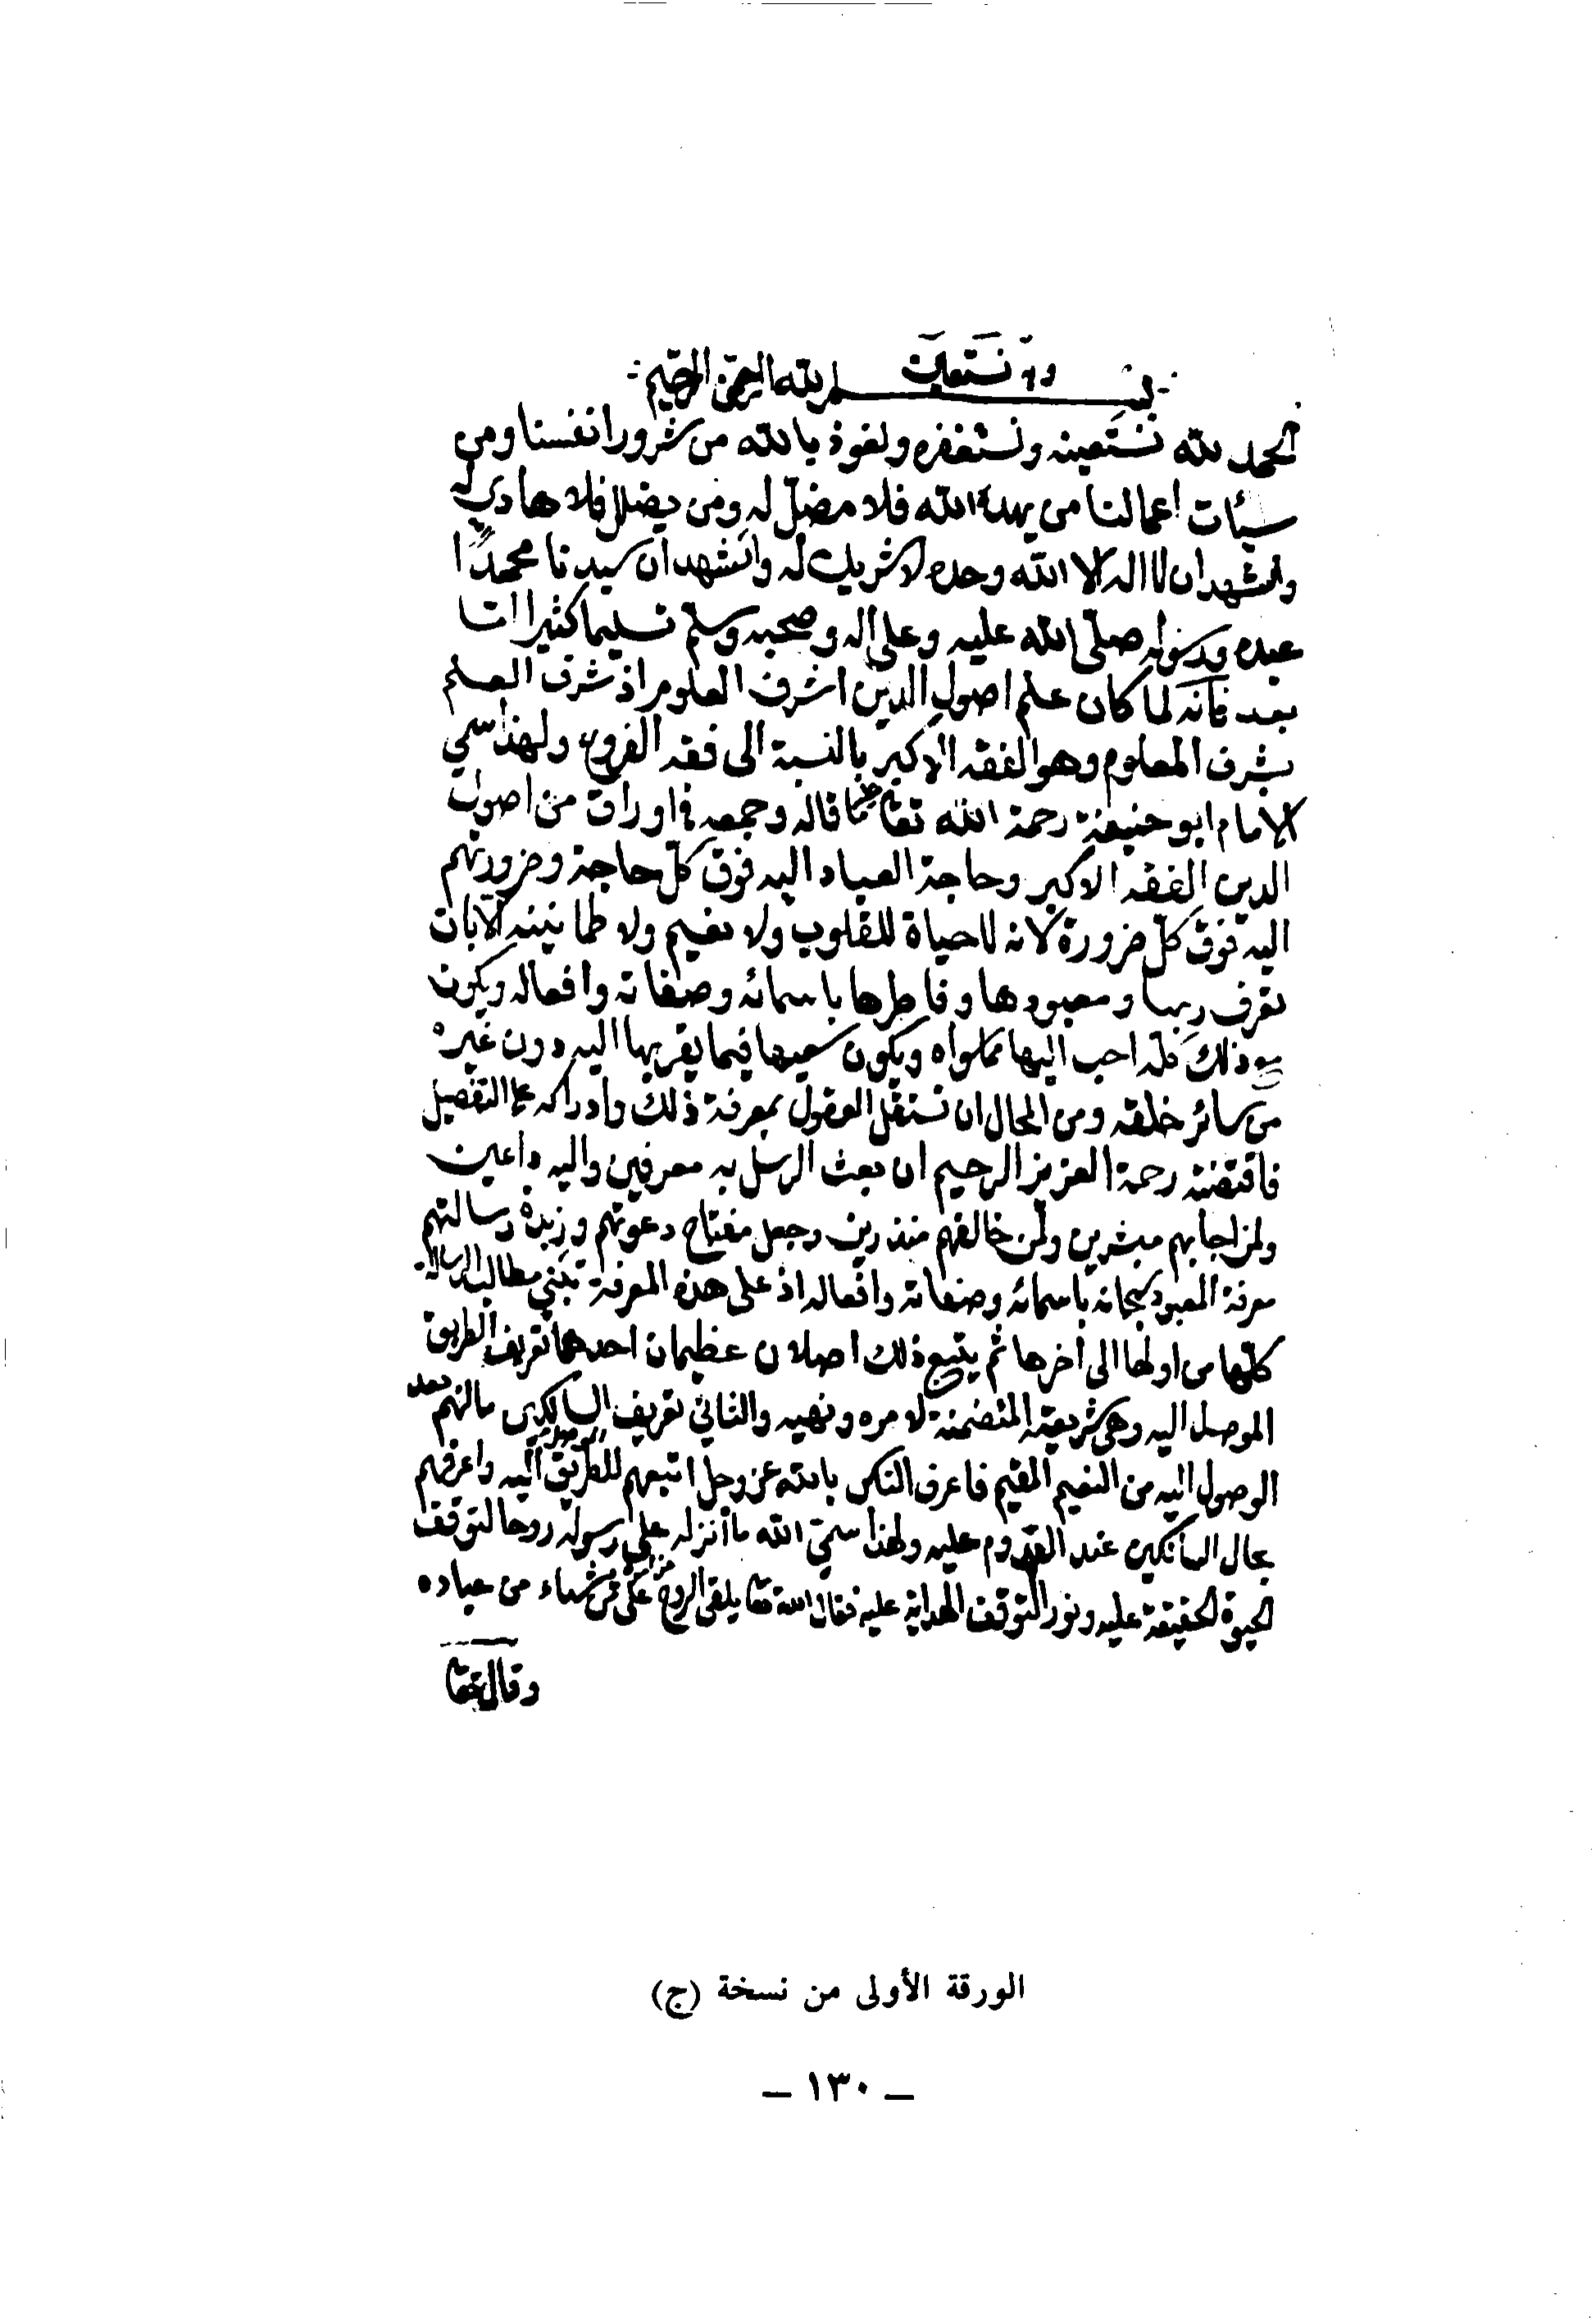 بسم الله الرحمن الرحيم وبه نستعين
الحمد لله نستعينه ونستغفره ونعوذ بالله من شرور انفسنا ومن
سيئات اعمالنا من يهده الله فلا مضل له ومن يضلل فلا هادي له
واشهد ان لا اله الا الله وحده لا شريك له واشهد ان سيدنا محمدًا
عبده ورسوله صلى الله عليه وعلى اله وصحبه وسلم تسليما كثيرا اما
بعد فانه لما كان علم اصول الدين اشرف العلوم اذ شرف العلم
بشرف المعلوم وهو الفقه الاكبر بالنسبة الى فقه الفروع ولهذا سمي
الامام ابو حنيفة رحمة الله تعا عليه ما قاله وجمعه في اوراق من اصول
الدين الفقه الاكبر وحاجة العباد اليه فوق كل حاجة وضرورتهم
اليه فوق كل ضرورة لانه لا حياة للقلوب ولا نعيم ولا طمانينه الا بان
تعرف ربها ومعبودها وفاطرها باسمائه وصفاته وافعاله ويكون
مع ذلك كله احب اليها مما سواه ويكون سعيها فيما يقربها اليه دون غيره
من سائر خلقه ومن المحال ان تستقل العقول بمعرفة ذلك وادراكه على التفصيل
فاقتضت رحمة العزيز الرحيم ان بعث الرسل به معرفين واليه داعين
ولمن اجابهم مبشرين ولمن خالفهم منذرين وجعل مفتاح دعوتهم وزبدة رسالتهم
معرفة المعبود سبحانه باسمائه وصفاته وافعاله اذ على هذه المعرفة تبتني مطالب الرسالة
كلها من اولها الى آخرها ثم يتبع ذلك اصلان عظيمان احدهما تعريف الطريق
الموصل اليه وهي شريعته المتضمنة لامره ونهيه والثاني تعريف السالكين ما لهم بعد
الوصول اليه من النعيم المقيم فاعرف الناس بالله عز وجل اتبعهم للطريق الموصل اليه واعرفهم
بحال السالكين عند القدوم عليه ولهذا سمى الله ما أنزله على رسوله روحا لتوقف
الحيوة الحقيقة عليه ونورا لتوقف الهداية عليه فقال الله تعا يلقي الروح من امره على من يشاء من عباده
وقال تعا
الورقة الأولى من نسخة (ج)
– ١٣٠ –